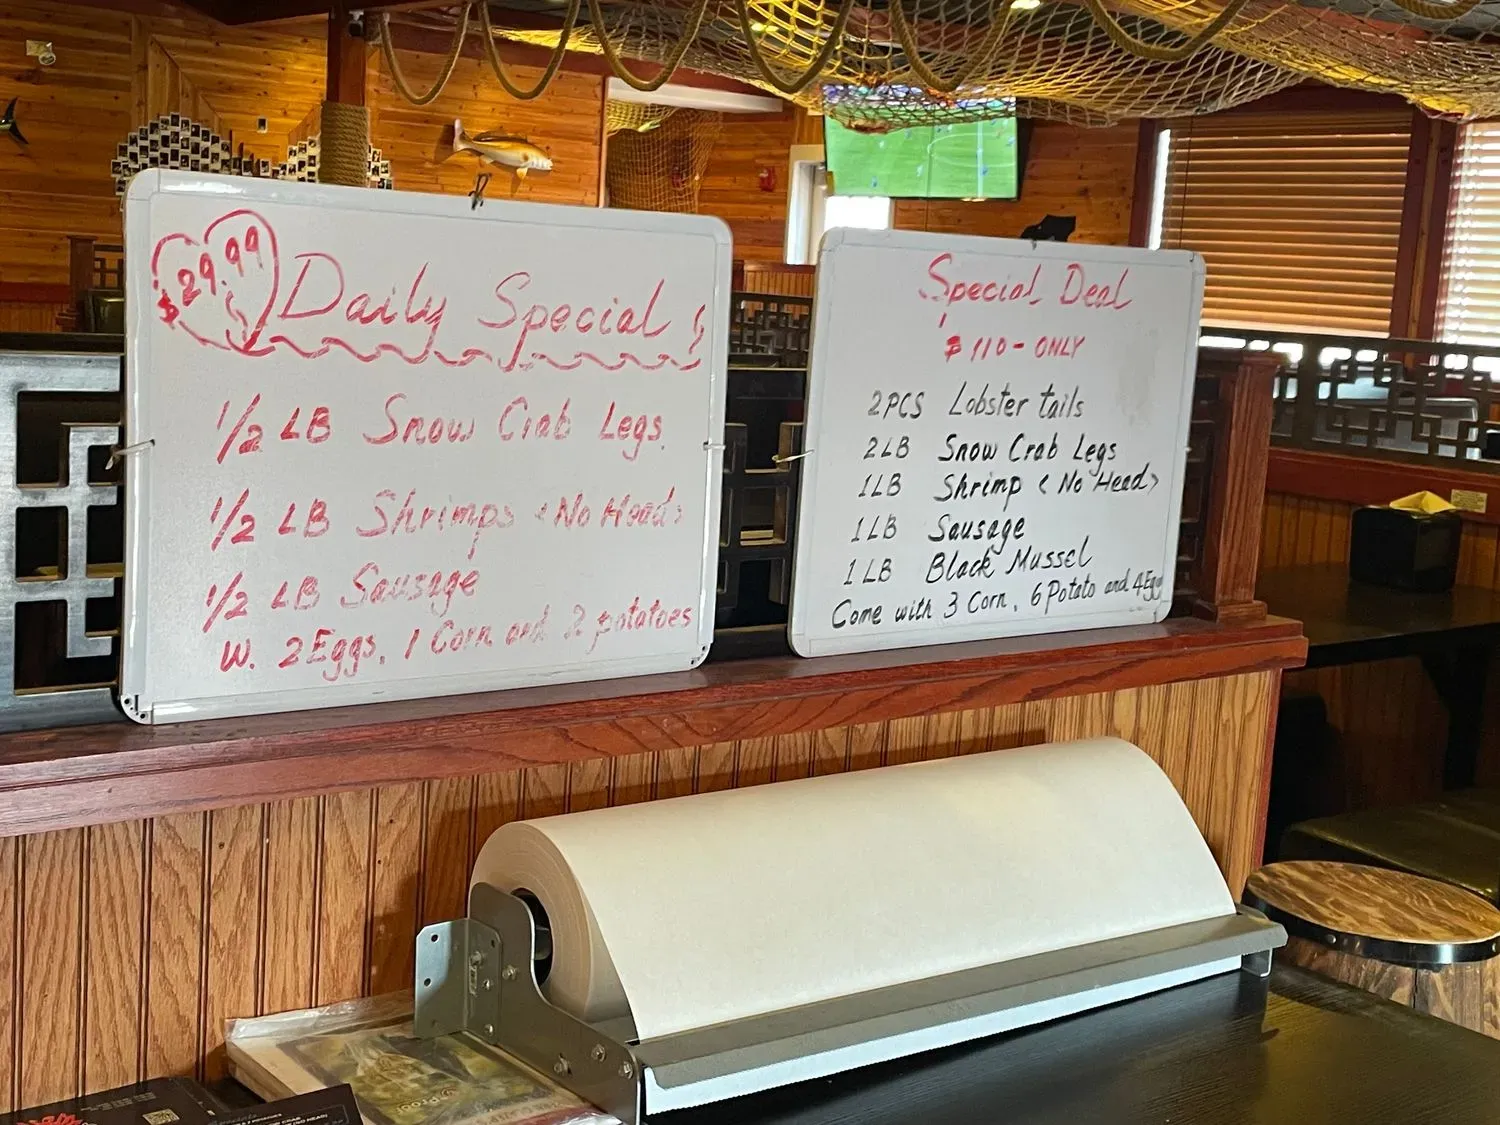 $29.99
Daily Special
1/2 LB Snow Crab Legs
1/2 LB Shrimps <No Head>
1/2 LB Sausage
W. 2 Eggs, 1 Corn and 2 potatoes
Special Deal
$110 - ONLY
2PCS Lobster tails
2LB Snow Crab Legs
1LB Shrimp <No Head>
1LB Sausage
1LB Black Mussel
Come with 3 Corn, 6 Potato and 4 Egg